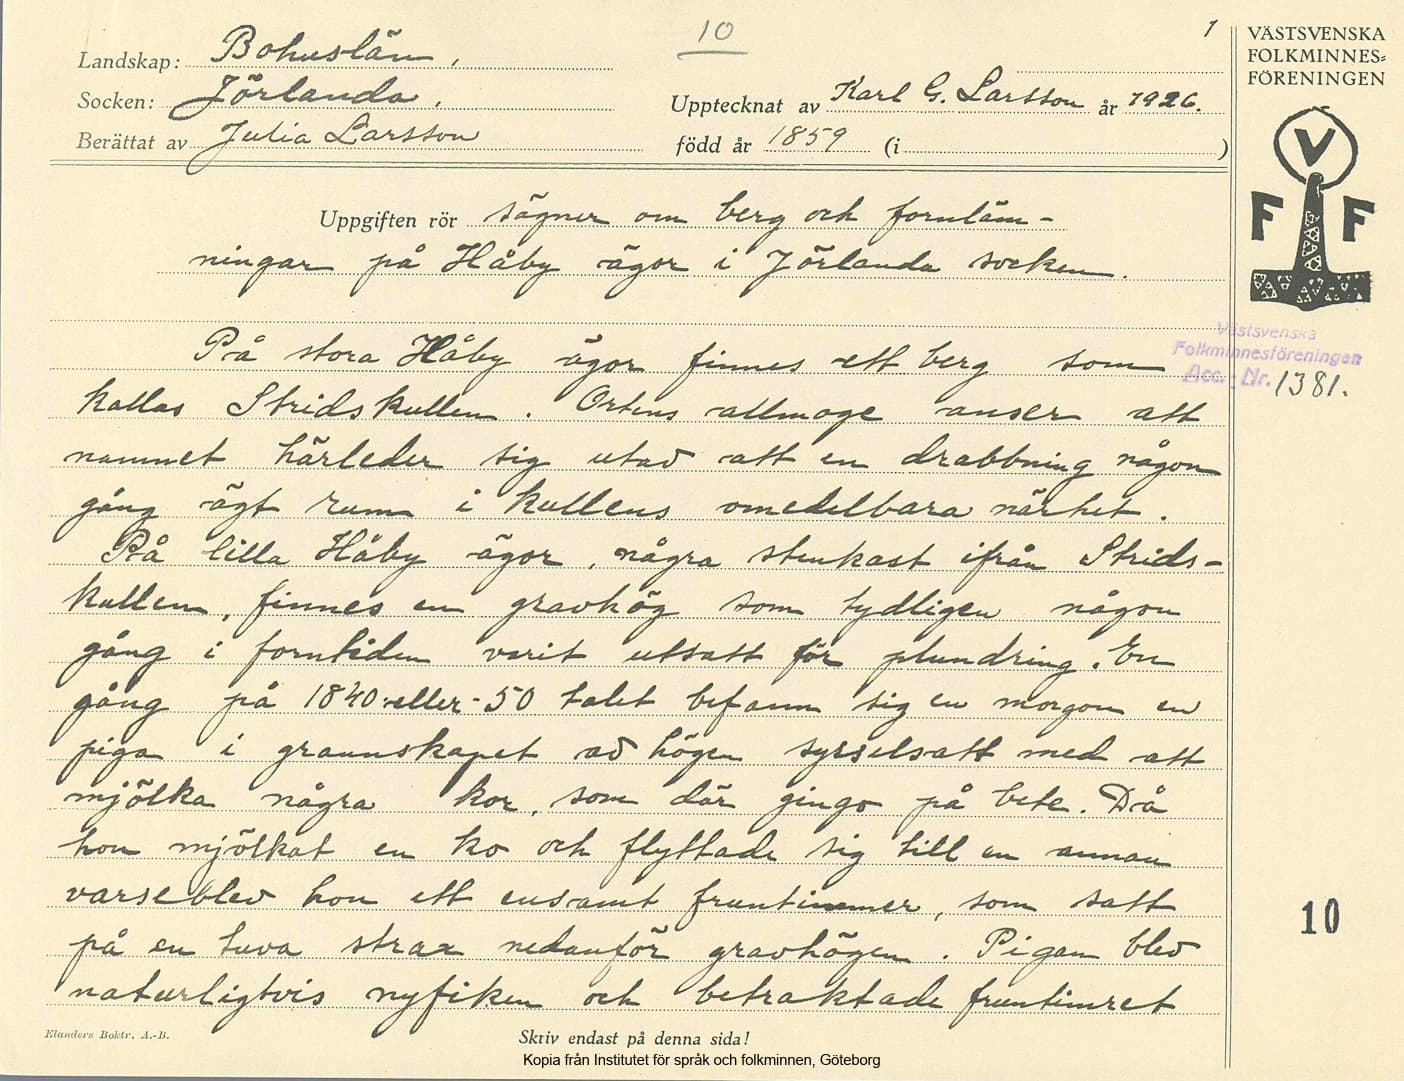 10
1
Landskap: Bohuslän,
Socken: Jörlanda,
Berättat av Julia Larsson
Upptecknat av Karl G. Larsson år 1926.
född år 1859 (i )
VÄSTSVENSKA
FOLKMINNES=
FÖRENINGEN
V
F F
Uppgiften rör sägner om berg och fornläm-
ningar på Håby ägor i Jörlanda socken.
Västsvenska
Folkminnesföreningen
Acc. Nr. 1381.
På stora Håby ägor finnes ett berg som
kallas Stridskullen. Ortens allmoge anser att
namnet härleder sig utav att en drabbning någon
gång ägt rum i kullens omedelbara närhet.
På lilla Håby ägor, några stenkast ifrån Strids-
kullen, finnes en gravhög som tydligen någon
gång i forntiden varit utsatt för plundring. En
gång på 1840-eller-50 talet befann sig en morgon en
piga i grannskapet av högen sysselsatt med att
mjölka några kor, som där gingo på bete. Då
hon mjölkat en ko och flyttade sig till en annan
varseblev hon ett ensamt fruntimmer, som satt
på en tuva strax nedanför gravhögen. Pigan blev
naturligtvis nyfiken och betraktade fruntimret
10
Elanders Boktr. A.-B.
Skriv endast på denna sida!
Kopia från Institutet för språk och folkminnen, Göteborg